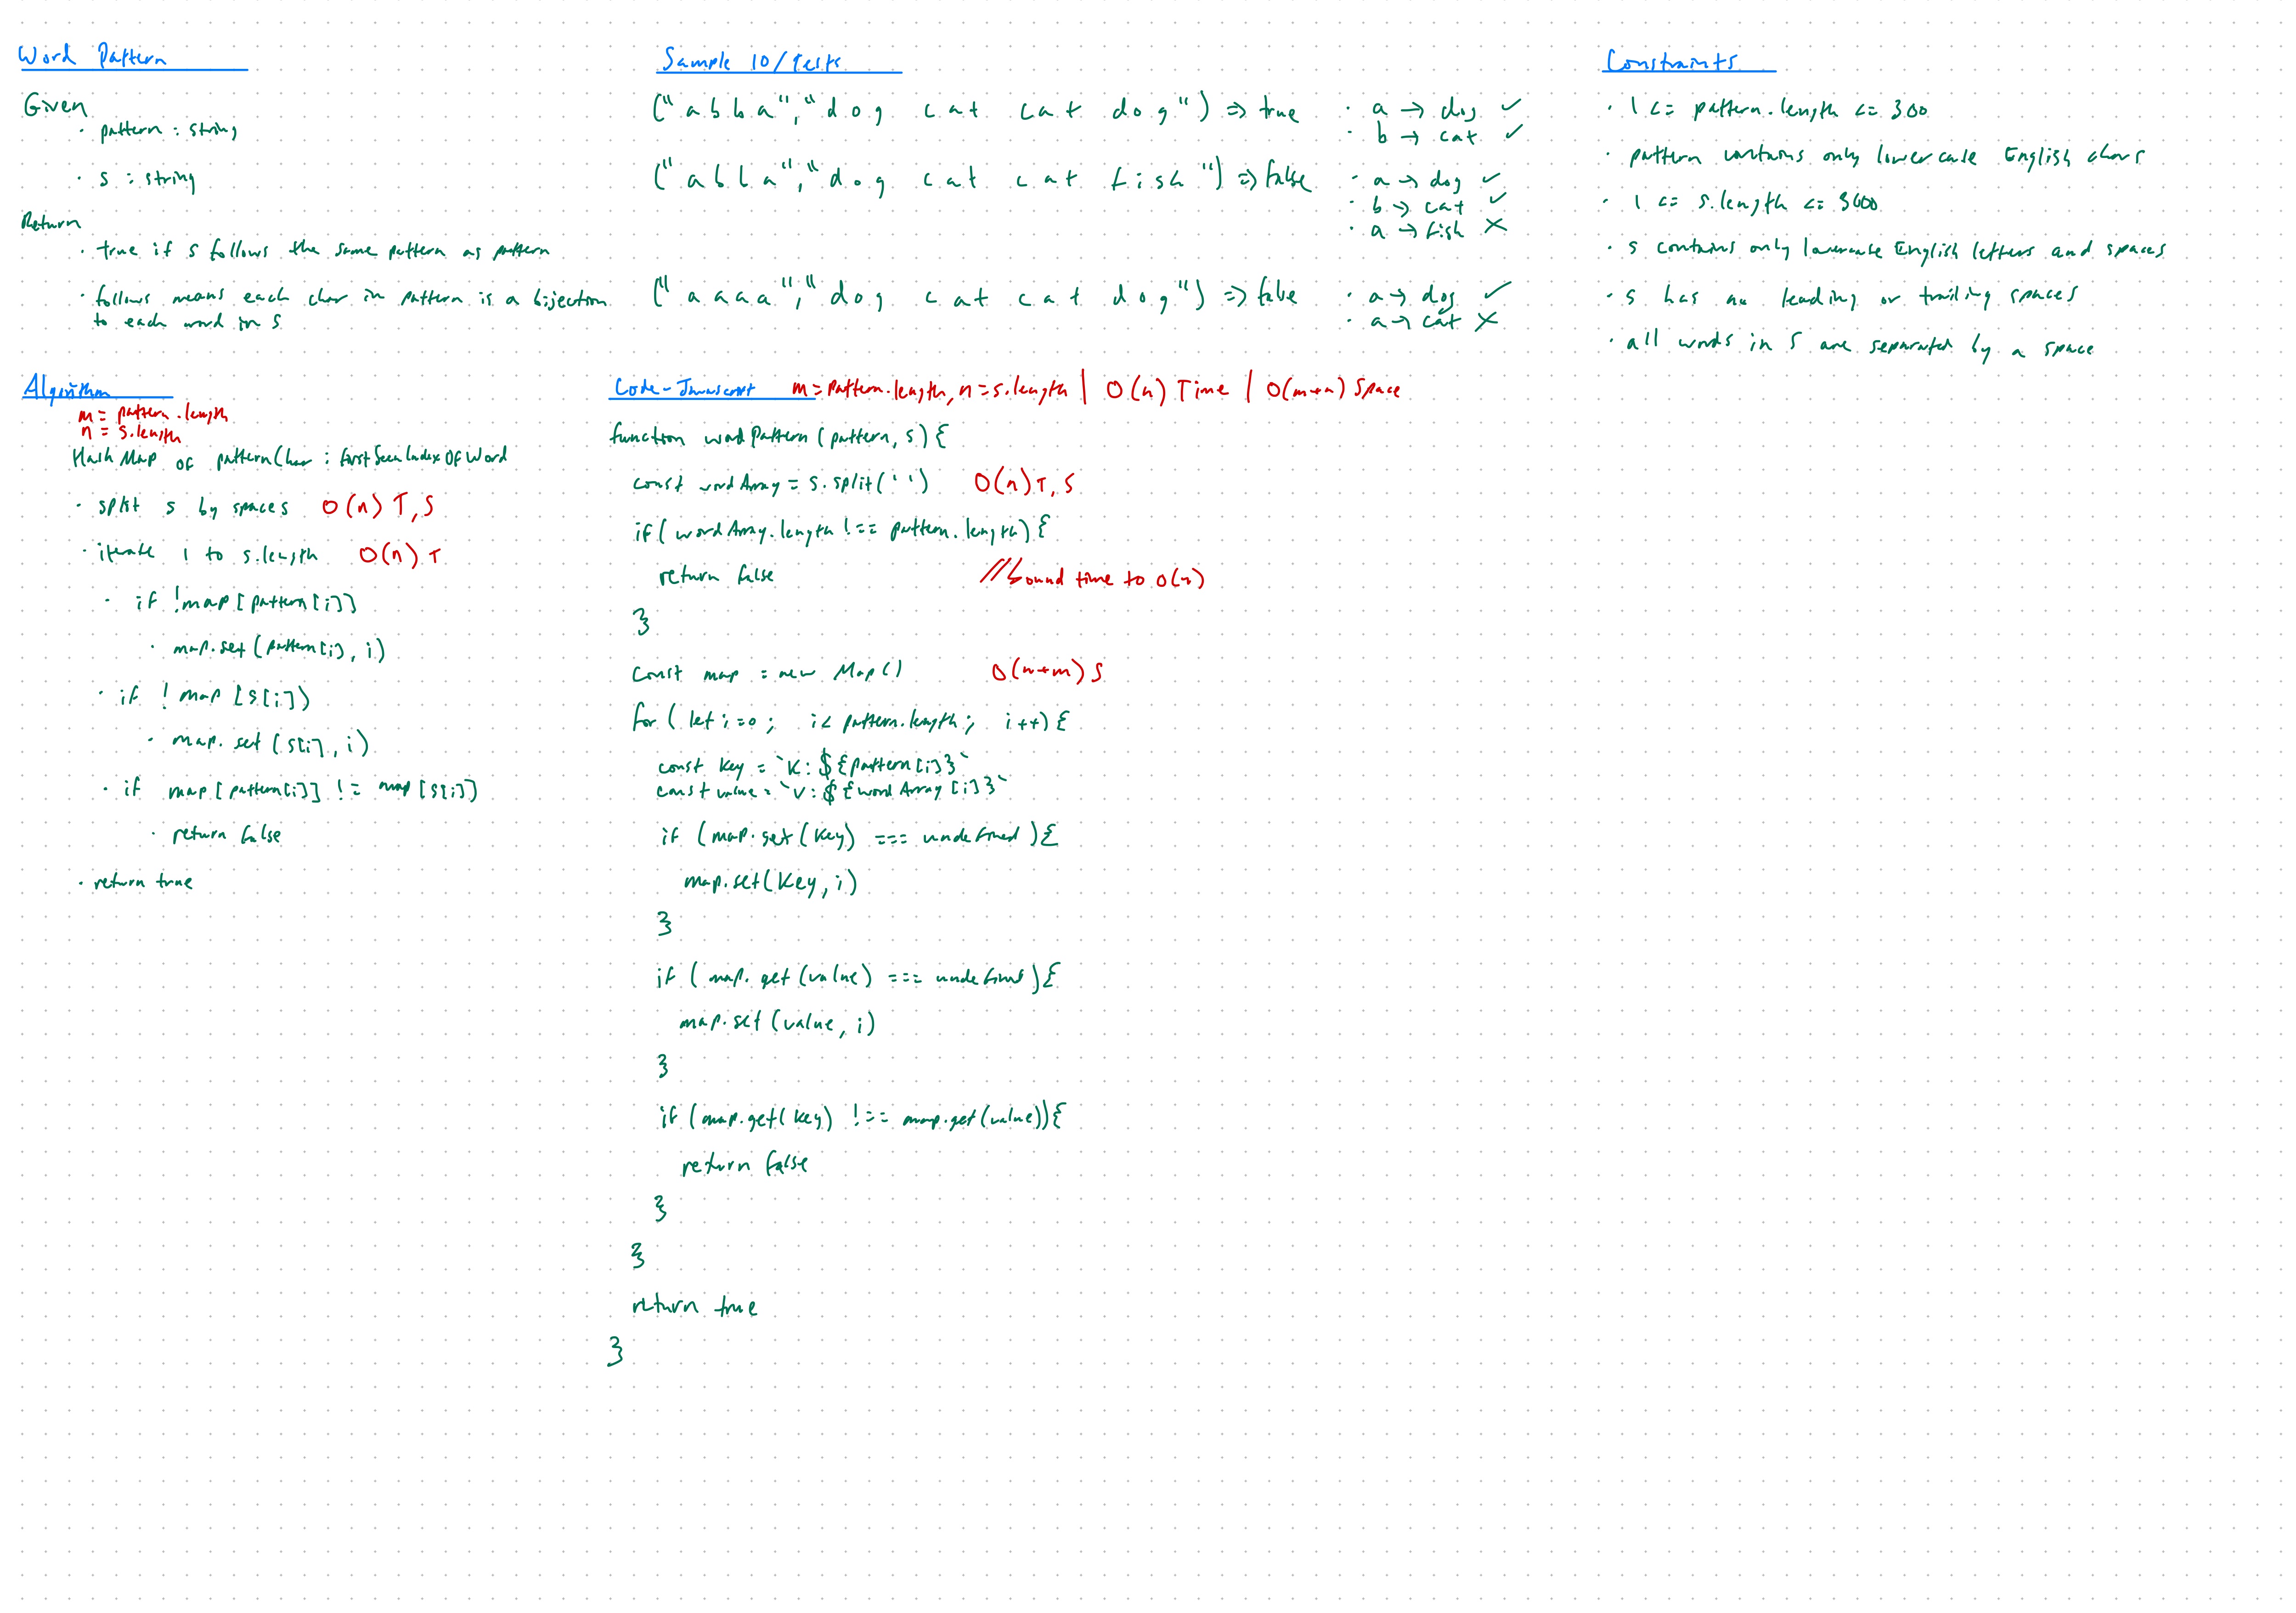 Word Pattern
Given
· pattern : string
· s : string
Return
· true if s follows the same pattern as pattern
· follows means each char in pattern is a bijection
to each word in s
Sample IO/Tests
("abba","dog cat cat dog") => true
· a → dog ✓
· b → cat ✓
("abba","dog cat cat fish") => false
· a → dog ✓
· b → cat ✓
· a → fish ✗
("aaaa","dog cat cat dog") => false
· a → dog ✓
· a → cat ✗
Constraints
· 1 <= pattern.length <= 300
· pattern contains only lowercase English chars
· 1 <= s.length <= 3000
· s contains only lowercase English letters and spaces
· s has no leading or trailing spaces
· all words in s are separated by a space
Algorithm
m = pattern.length
n = s.length
Hash Map of patternChar : firstSeenIndexOfWord
· split s by spaces O(n) T, S
· iterate 1 to s.length O(n) T
· if !map[pattern[i]]
· map.set(pattern[i], i)
· if !map[s[i])
· map.set(s[i], i)
· if map[pattern[i]] != map[s[i]]
· return false
· return true
Code - Javascript m = pattern.length, n = s.length | O(n) Time | O(m+n) Space
function wordPattern(pattern, s){
const wordArray = s.split(' ') O(n) T, S
if(wordArray.length !== pattern.length){
return false //bound time to O(n)
}
const map = new Map() O(n+m) S
for(let i=0; i< pattern.length; i++){
const key = `K:${pattern[i]}`
const value = `V:${wordArray[i]}`
if (map.get(key) === undefined){
map.set(key, i)
}
if (map.get(value) === undefined){
map.set(value, i)
}
if (map.get(key) !== map.get(value)){
return false
}
}
return true
}